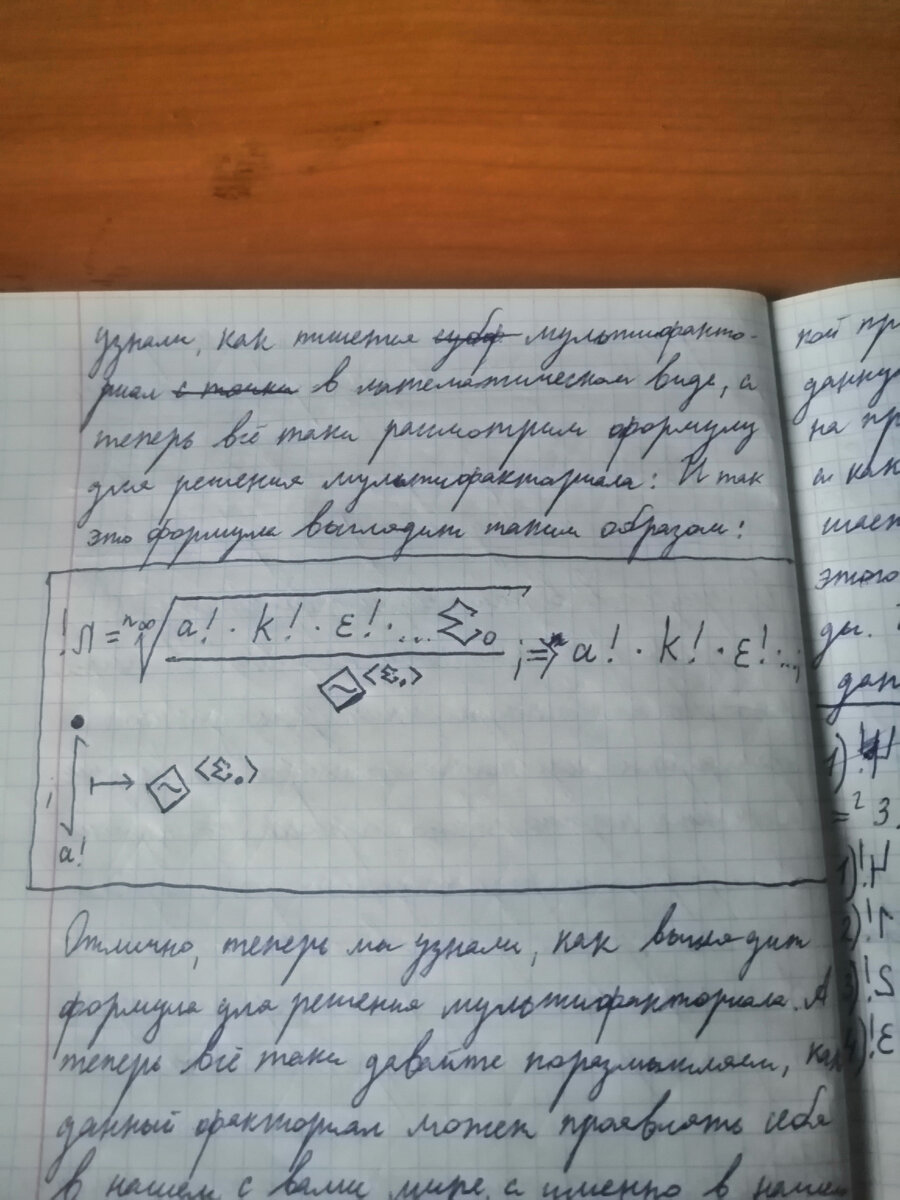 узнали, как пишется субф мультифакто-
риал с точки в математическом виде, а
теперь всё таки рассмотрим формулу
для решения мультифакториала: И так
это формула выглядит таким образом:
= n∞√ a! · k! · ε! · ... Σ₀ ;=> a! · k! · ε! · ...;
<Σ₀>
a! ↦ <Σ₀>
Отлично, теперь мы узнали, как выглядит
формула для решения мультифакториала. А
теперь всё таки давайте поразмышляем, как
данный факториал может проявлять себя
в нашем с вами мире, а именно в нашем
кой пр
данну
на пр
и как
шает
этого
ды.
дан
1)
= 2 3
1)
2)
3)
4)